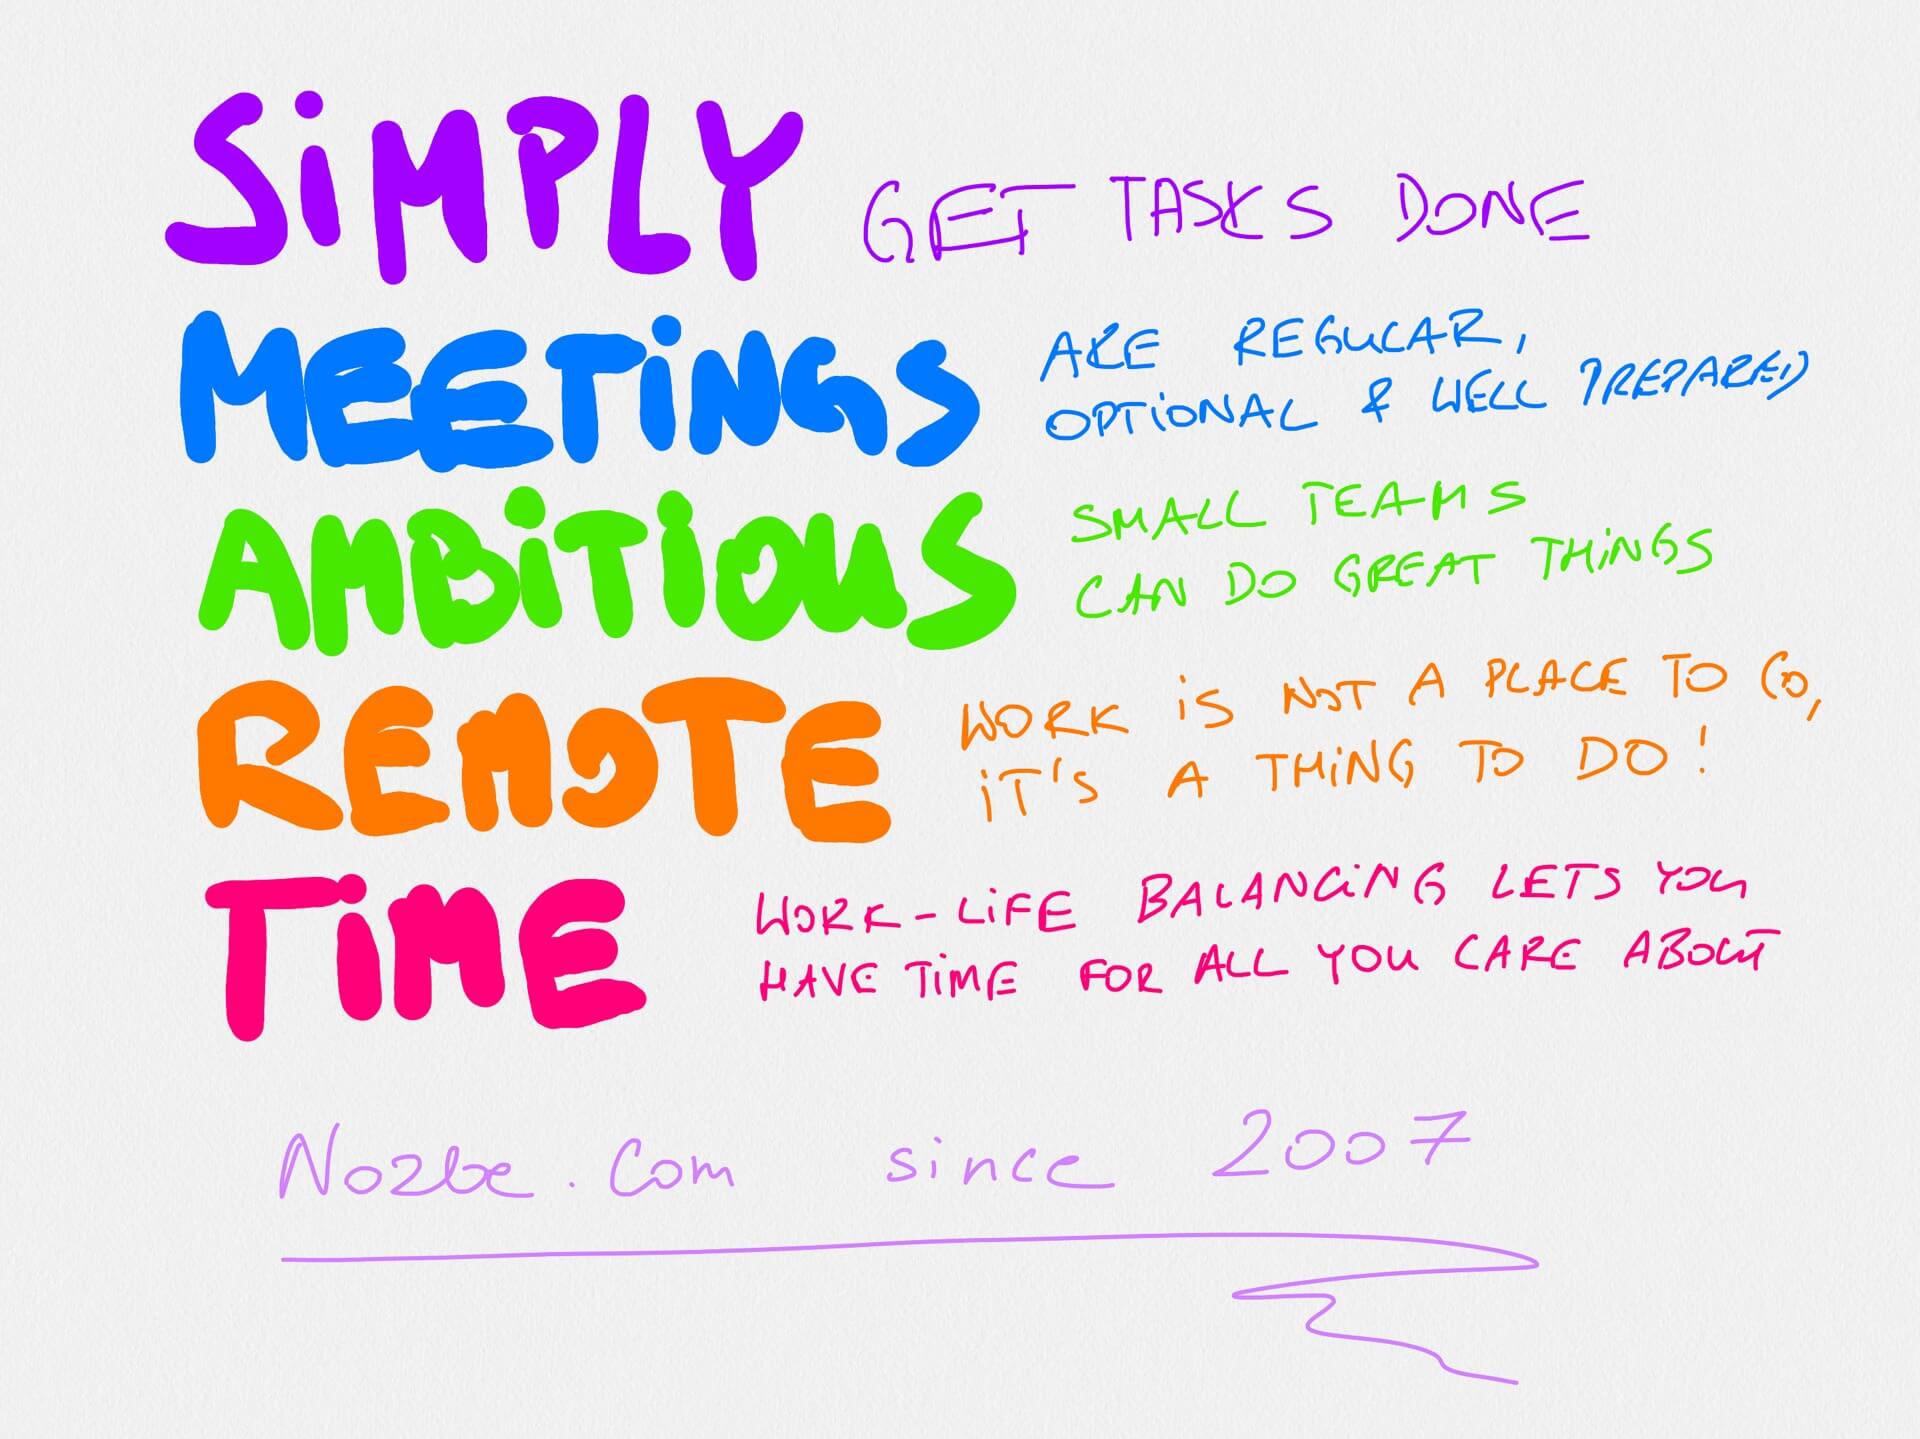 SiMPLY GET TASKS DONE
MEETiNGS ARE REGULAR,
OPTiONAL & WELL PREPARED
AMBiTiOUS SMALL TEAMS
CAN DO GREAT THiNGS
REMOTE WORK iS NOT A PLACE TO GO,
iT'S A THiNG TO DO!
TiME WORK-LiFE BALANCiNG LETS YOU
HAVE TiME FOR ALL YOU CARE ABOUT
Nozbe.Com since 2007